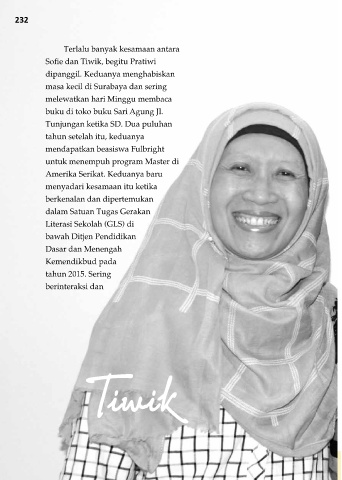 232
Terlalu banyak kesamaan antara
Sofie dan Tiwik, begitu Pratiwi
dipanggil. Keduanya menghabiskan
masa kecil di Surabaya dan sering
melewatkan hari Minggu membaca
buku di toko buku Sari Agung Jl.
Tunjungan ketika SD. Dua puluhan
tahun setelah itu, keduanya
mendapatkan beasiswa Fulbright
untuk menempuh program Master di
Amerika Serikat. Keduanya baru
menyadari kesamaan itu ketika
berkenalan dan dipertemukan
dalam Satuan Tugas Gerakan
Literasi Sekolah (GLS) di
bawah Ditjen Pendidikan
Dasar dan Menengah
Kemendikbud pada
tahun 2015. Sering
berinteraksi dan
Tiwik